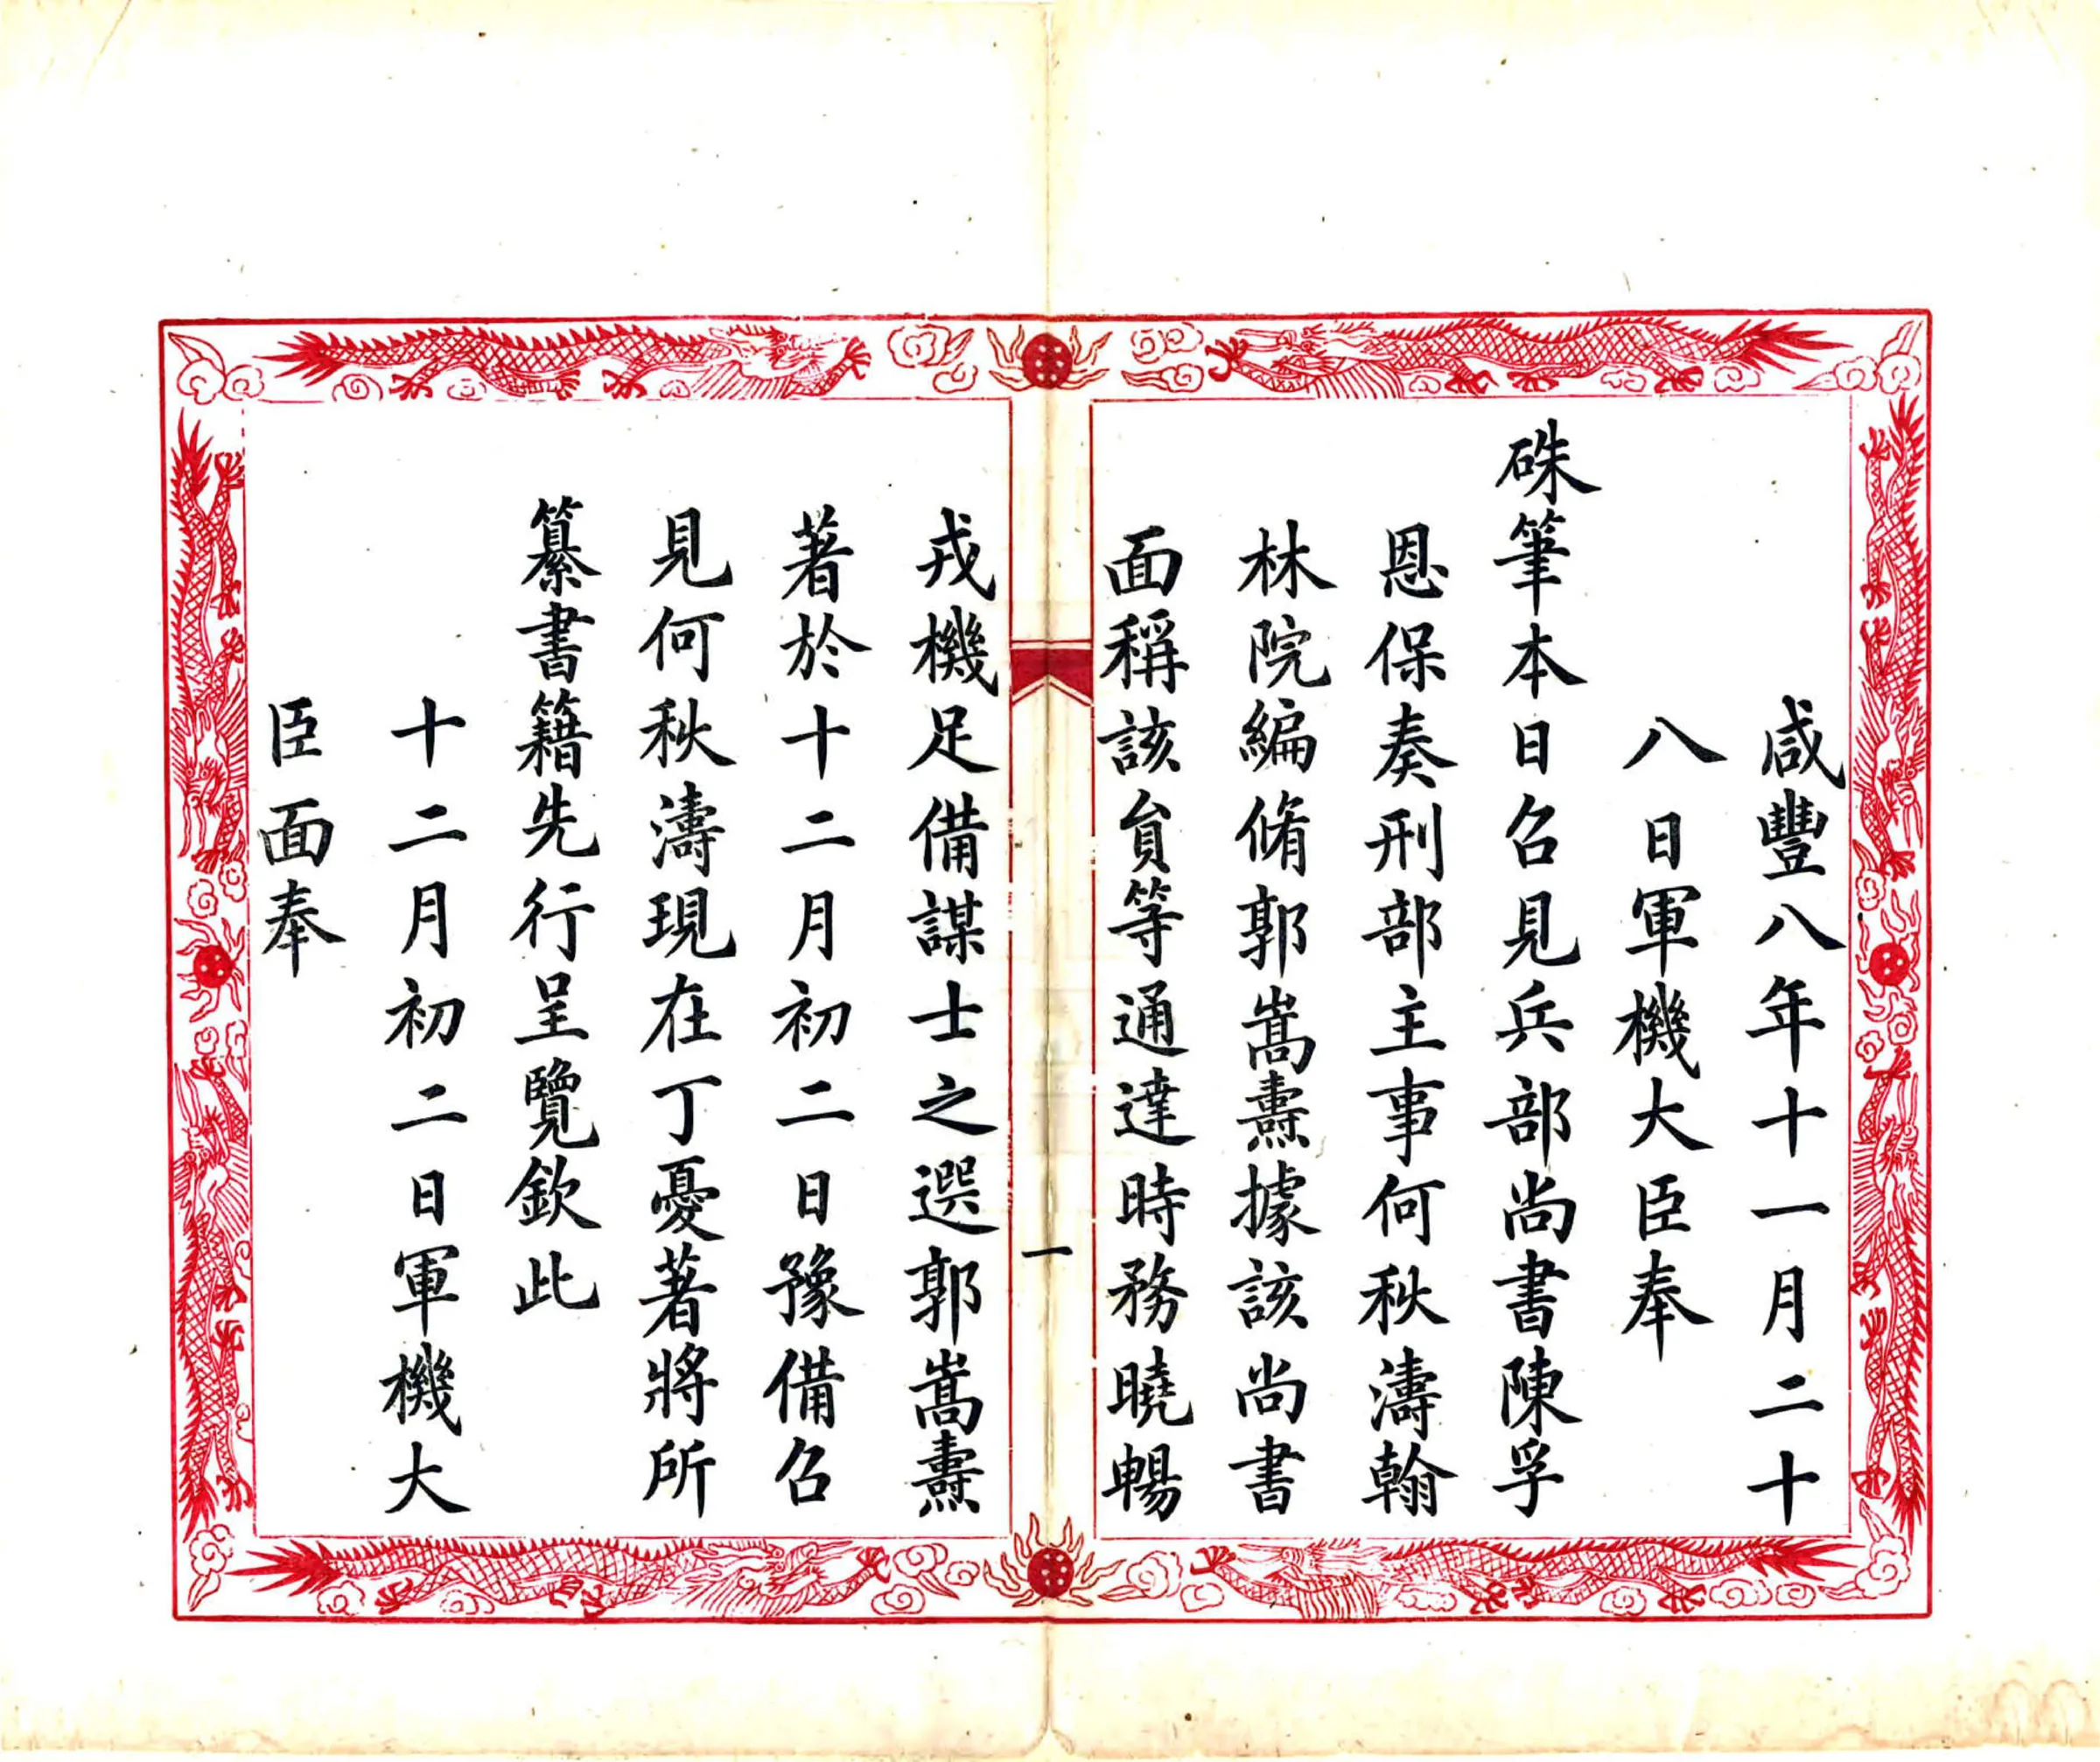 咸豐八年十一月二十
八日軍機大臣奉
硃筆本日召見兵部尚書陳孚
恩保奏刑部主事何秋濤翰
林院編脩郭嵩燾據該尚書
面稱該員等通達時務曉暢
一
戎機足備謀士之選郭嵩燾
著於十二月初二日豫備召
見何秋濤現在丁憂著將所
纂書籍先行呈覽欽此
十二月初二日軍機大
臣面奉